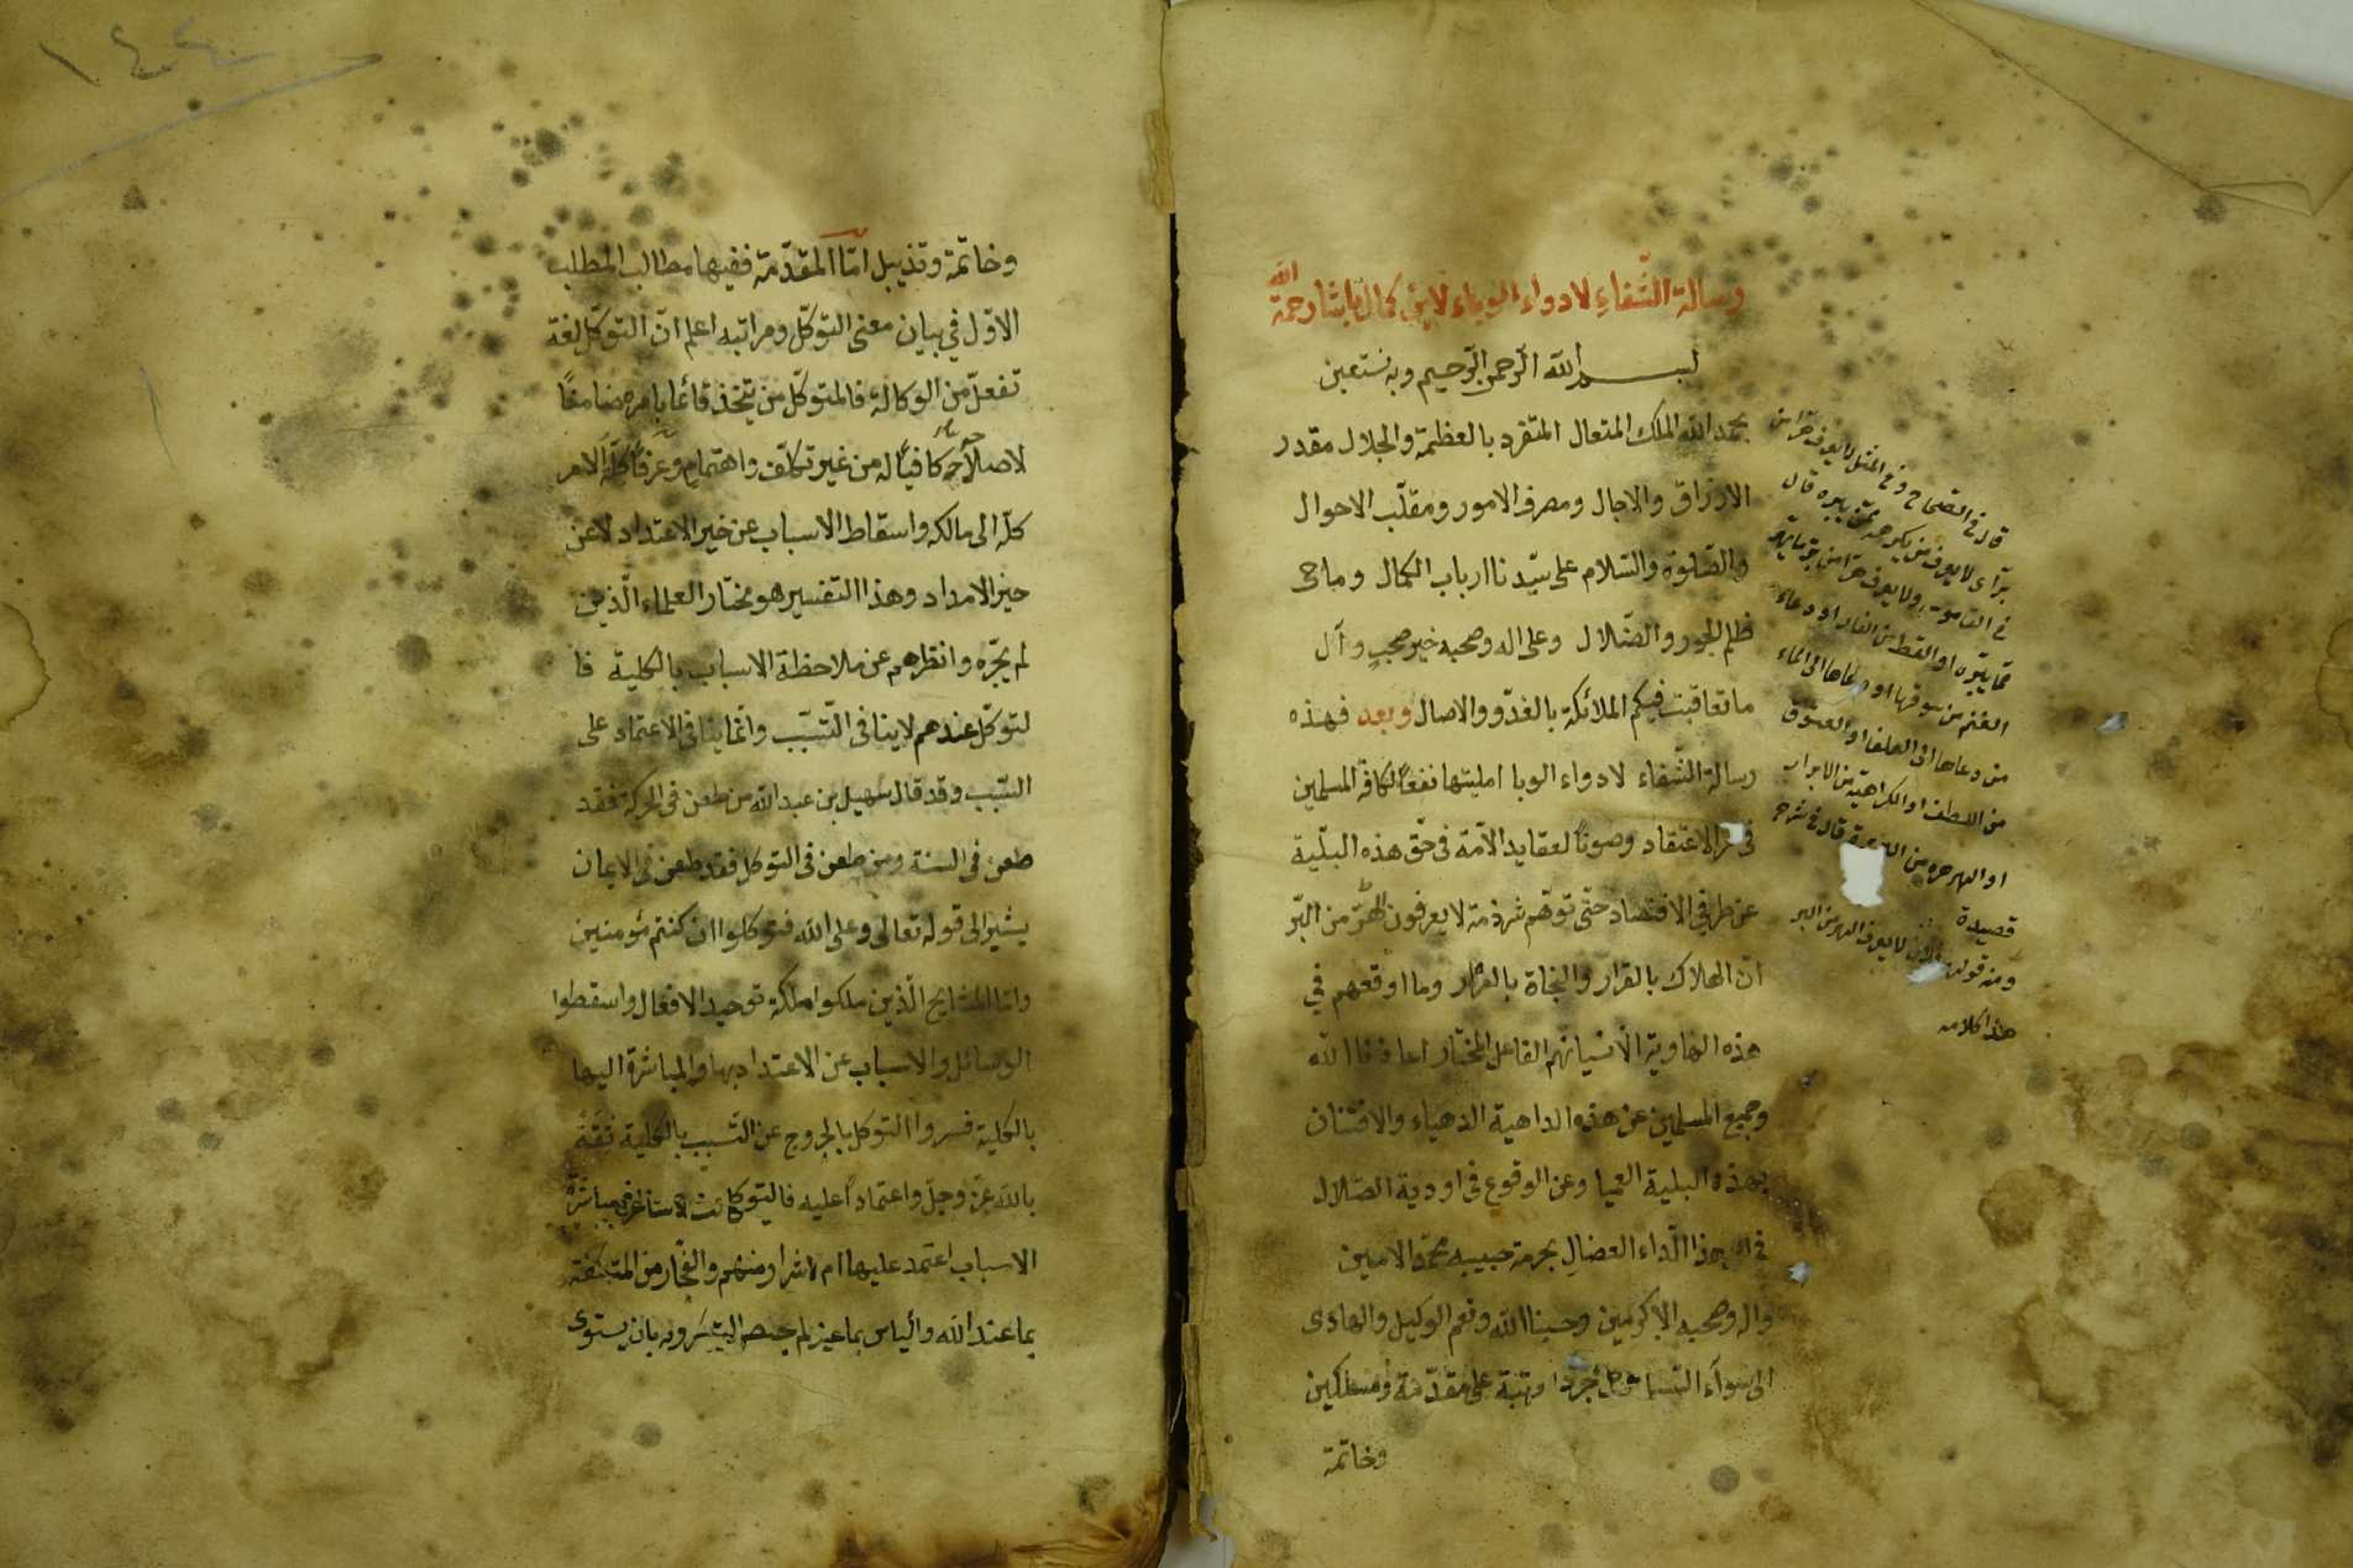 رسالة الشّفاءِ لادواء الوباء لابن كمال پاشا رحمة الله
بسم الله الرّحمن الرّحيم وبه نستعين
بحمد الله الملك المتعال المتفرد بالعظمة والجلال مقدر
الارزاق والاجال ومصرف الامور ومقلّب الاحوال
والصّلوة والسّلام على سيّدنا ارباب الكمال وماحى
ظلم الجور والضّلال وعلى اله وصحبه خير صحبٍ وآل
ما تعاقبت فيكم الملائكة بالغدوّ والاصال وبعد فهذه
رسالة الشّفاء لادواء الوبا امليتها نفعًا لكافّة المسلمين
فى الاعتقاد وصونًا لعقايد الامّة فى حقّ هذه البلّية
عن طرفي الاقتصاد حتّى توهّم شرذمة لا يعرفون الهرّ من البرّ
انّ الهلاك بالقرار والنجاة بالفرار وما اوقعهم في
هذه الهاوية الّا نسيانهم الفاعل المختار اعاذنا الله
وجميع المسلمين عن هذه الداهية الدهياء والافتنان
بهذه البلية العميا وعن الوقوع فى اودية الضّلال
بهذا الّداء العضالِ بحرمة حبيبه محمّد الامين
واله وصحبه الاكرمين وحسبنا الله ونعم الوكيل والهادى
الى سوآء السّبيل مرتبة على مقدّمة ومسلكين
وخاتمة
قال فى الصّحاح وفى المثل لا يعرف هرّا من
برّ اى لا يعرف من يكرهه ممّن يبره قال
فى القاموس ولا يعرف هرّا من برّ ما يهرّه
ممّا يبّره او القط من الفار او دعاء
الغنم من سوقها او دعاها الى الماء
من دعاها الى العلف او العقوق
من اللطف او الكراهية من الابرار
او الهرهرة من البربرة قال فى شرح
قصيدة
ومنه قولهم لا يعرف الهر من البر
هذا كلامه
وخاتمة وتذييل امّا المقدّمة ففيها مطالب المطلب
الاوّل في بيان معنى التوكّل ومراتبه اعلم انّ التوكّل لغة
تفعلّ من الوكالة فالمتوكّل من يتّخذ قائما بامره ضامنًا
لاصلاحه كافيًا له من غير تكلّف واهتمام وعرفًا كلة الامر
كلّه الى مالكه واسقاط الاسباب عن خير الاعتداد لا عن
حيز الامداد وهذا التفسير هو مختار العلماء الّذين
لم يجرّدوا نظرهم عن ملاحظة الاسباب بالكلية فا
لتوكّل عندهم لا ينافى التّسبّب وانّما ينافى الاعتماد على
السّبب وقد قال سهيل بن عبد الله من طعن فى الحركة فقد
طعن فى السنة ومن طعن فى التوكل فقد طعن فى الايمان
يشير الى قوله تعالى وعلى الله فتوكلوا ان كنتم مؤمنين
وامّا المشايخ الّذين ملكوا مملكة توحيد الافعال واسقطوا
الوسائل والاسباب عن الاعتداد بها والمباشرة اليها
بالكلية فسروا التوكل بالخروج عن التّسبب بالكلية ثقة
بالله عزّ وجلّ واعتمادًا عليه فالتوكل مباشرة
الاسباب اعتمد عليها ام لا
بما عند الله والياس بما يستوى
١٤٤٠